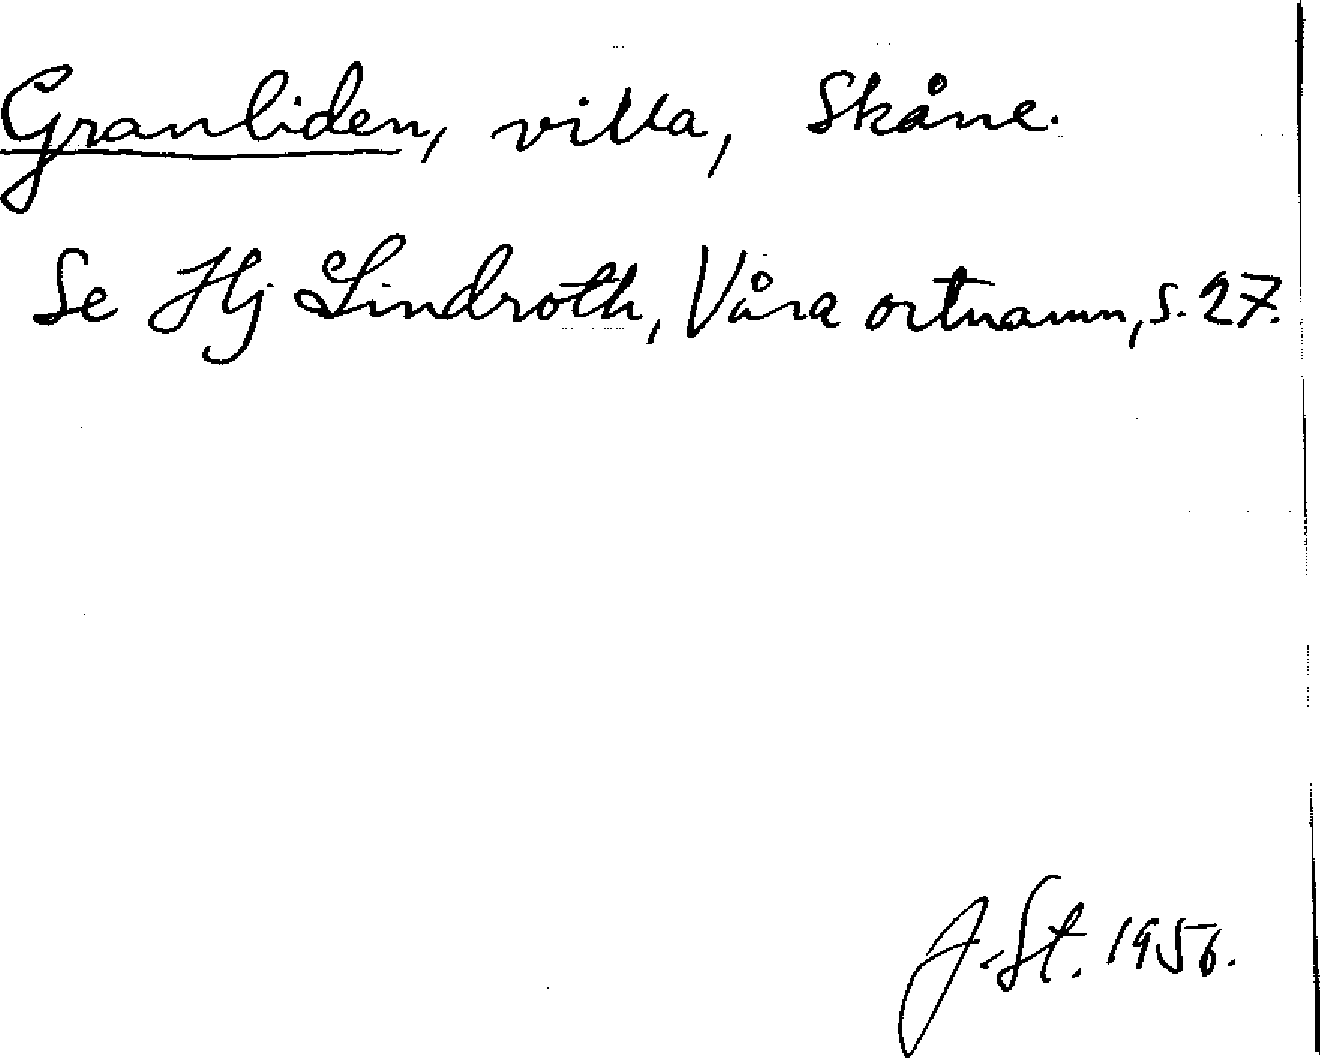 Granliden, villa, Skåne.
Se Hj Lindroth, Våra ortnamn, s. 27.
J. St. 1956.